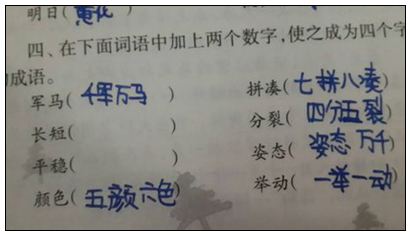 明日(黄花
四、在下面词语中加上两个数字,使之成为四个字
的成语。
军马(千军万马) 拼凑(七拼八凑)
长短( ) 分裂(四分五裂)
平稳( ) 姿态(姿态万千
颜色(五颜六色) 举动(一举一动)